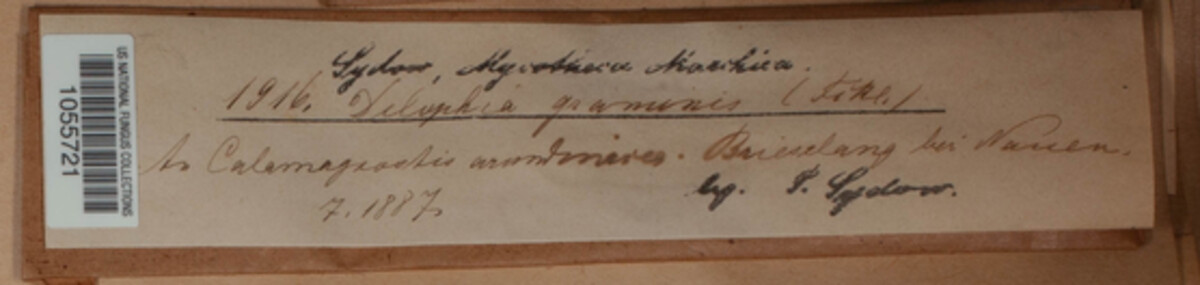 Sydow, Mycotheca Marchica.
1916. Dilophia graminis (Fckl.)
An Calamagrostis arundinacea. Brieselang bei Nauen.
7. 1887.
leg. P. Sydow.
US NATIONAL FUNGUS COLLECTIONS
1055721